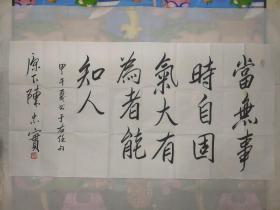 當無事
時自固
氣大有
為者能
知人
甲午夏于右任句
原下陳忠實